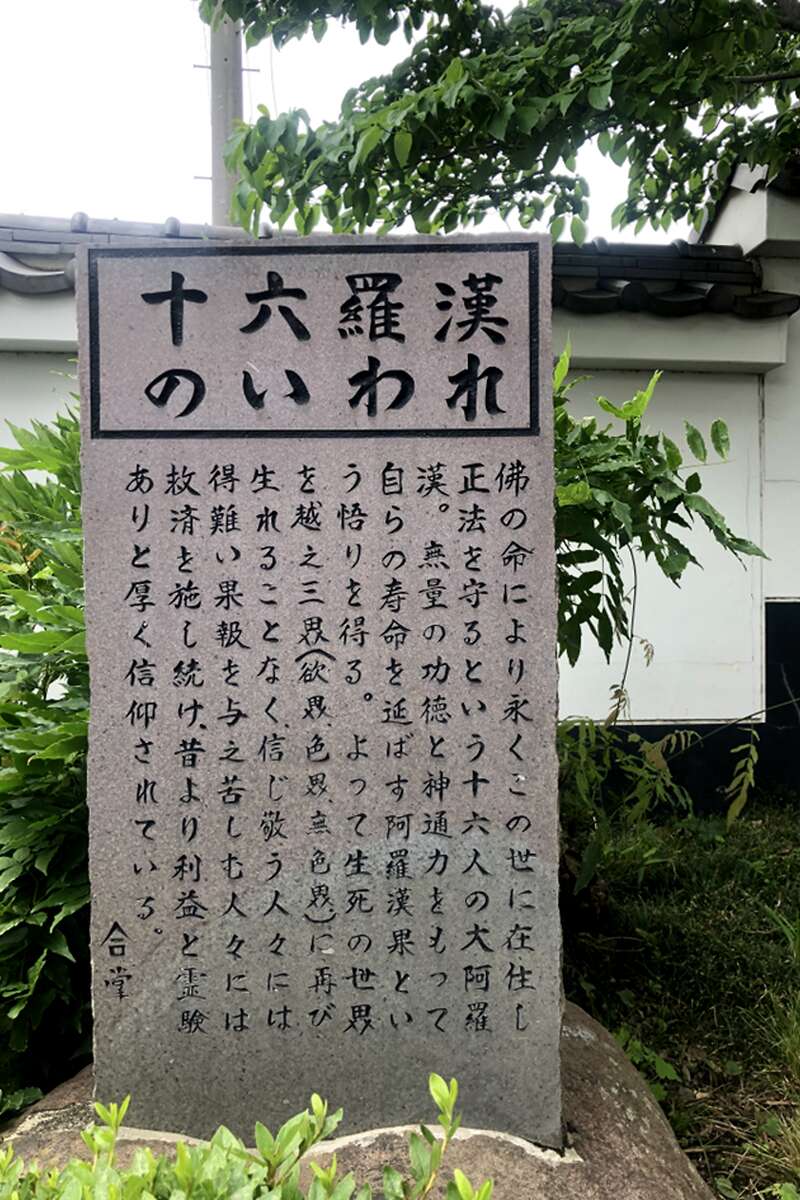 十六羅漢
のいわれ
佛の命により永くこの世に在住し
正法を守るという十六人の大阿羅
漢。無量の功徳と神通力をもって
自らの寿命を延ばす阿羅漢果とい
う悟りを得る。よって生死の世界
を越え三界(欲界、色界、無色界)に再び
生れることなく、信じ敬う人々には
得難い果報を与え苦しむ人々には
救済を施し続け、昔より利益と霊験
ありと厚く信仰されている。
合掌